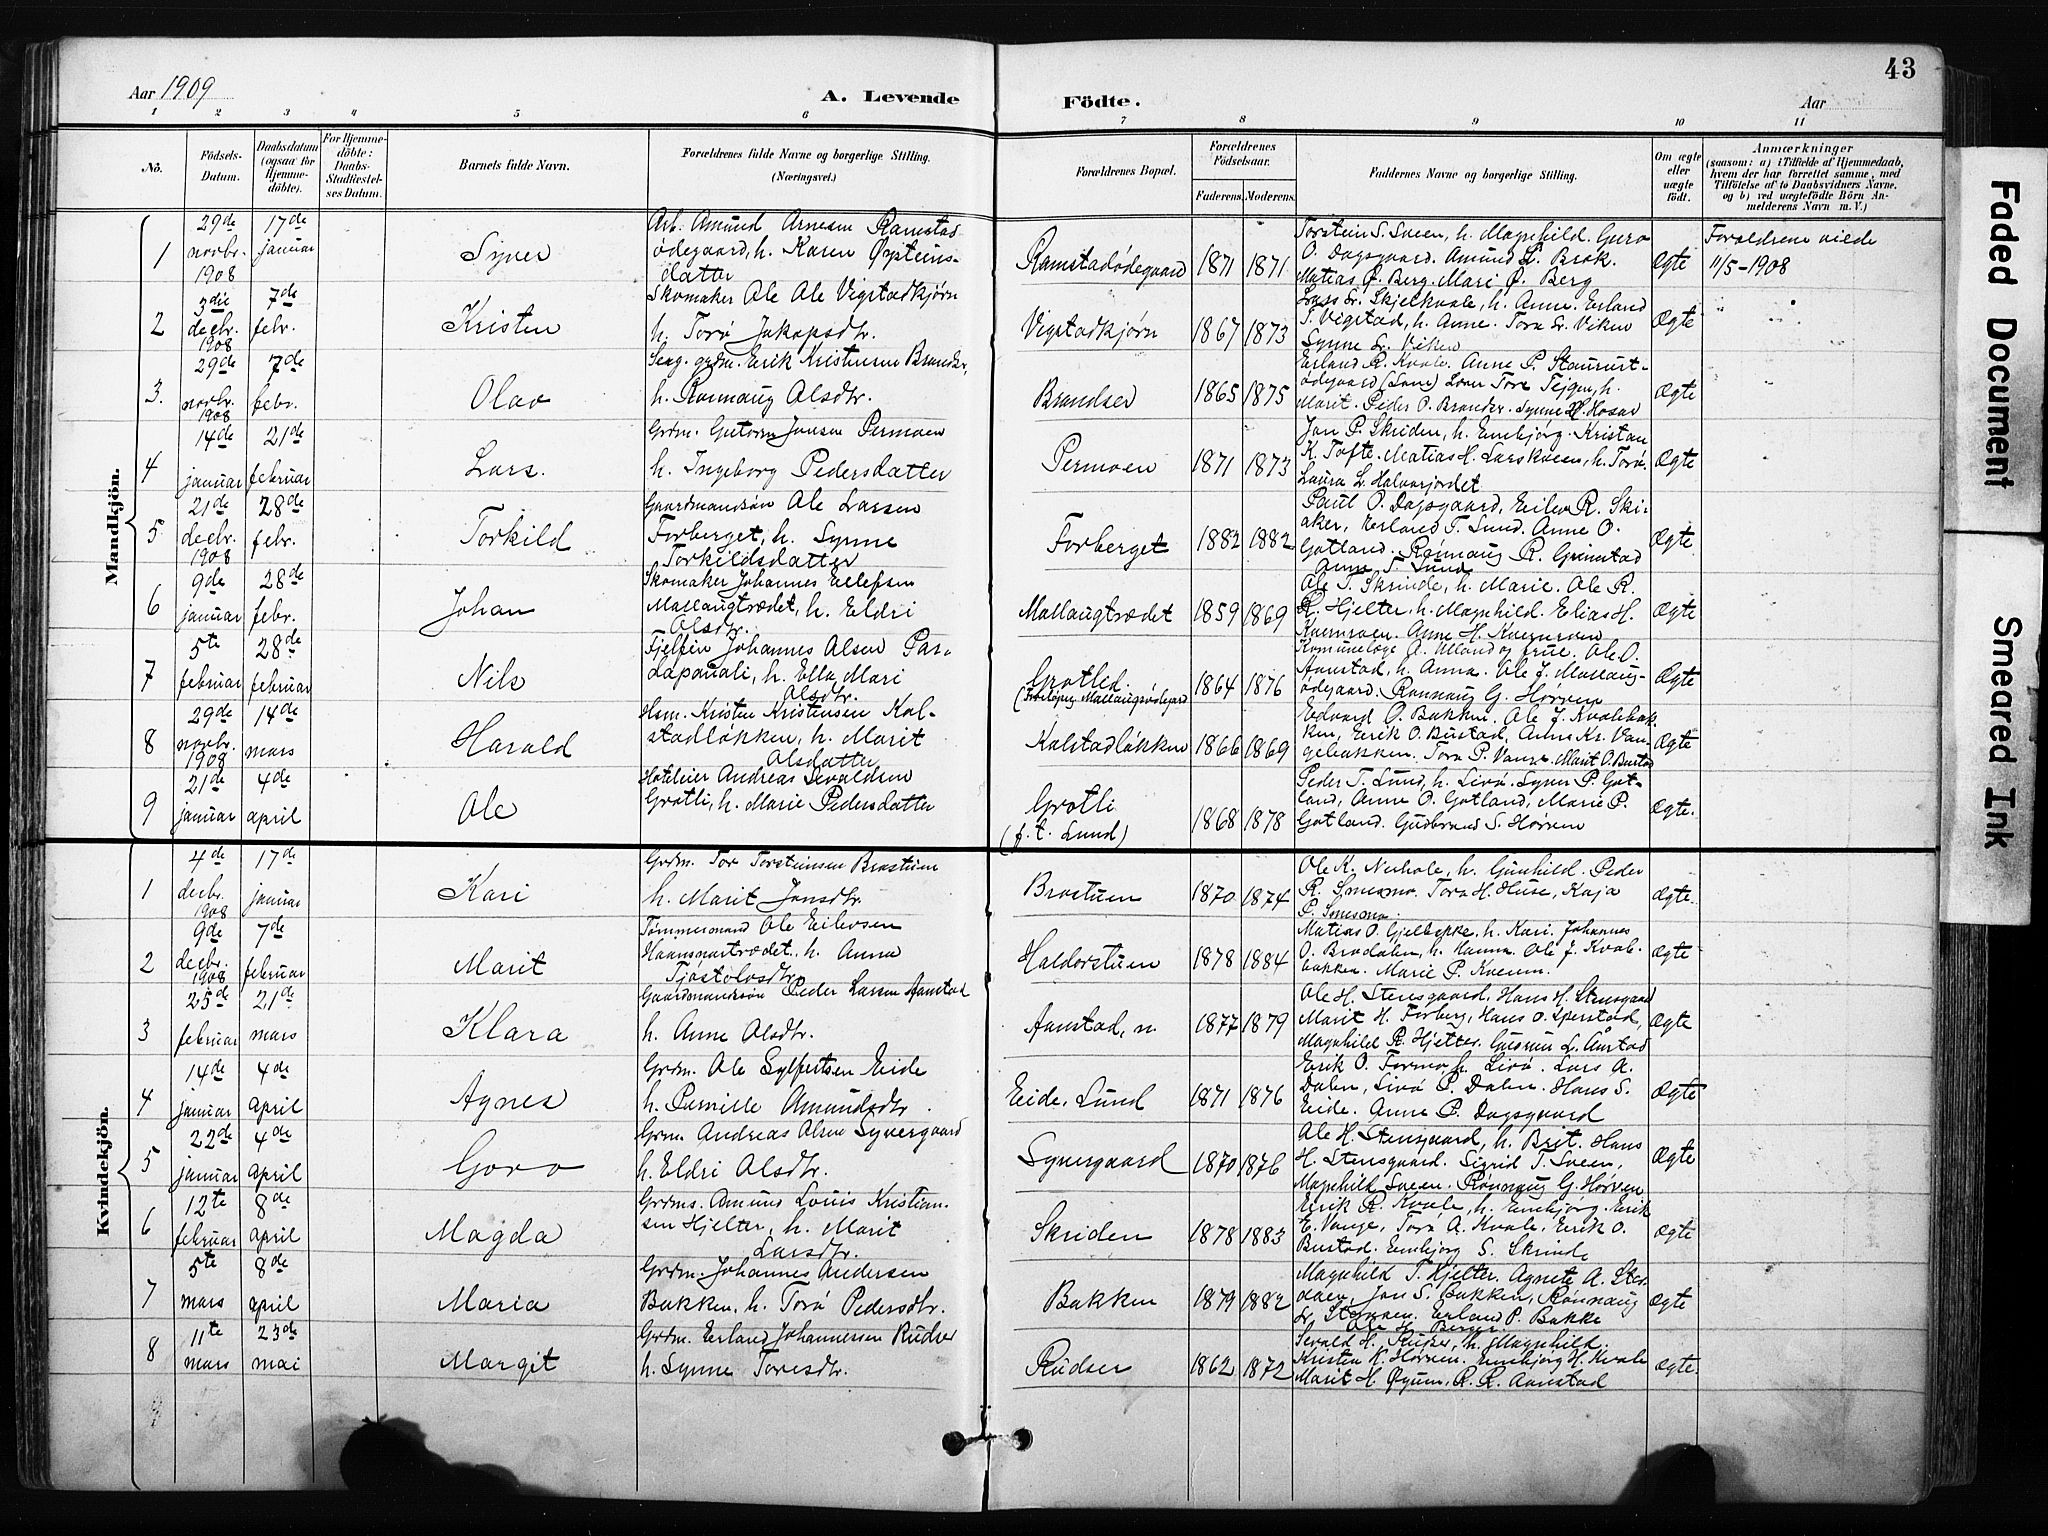 43
Aar 1909
A. Levende
Födte.
Aar
1 2 3 4 5 6 7 8 9 10 11
No.
Födsels-
Datum.
Daabsdatum
(ogsaa for
Hjemme-
döbte).
For Hjemme-
döbte:
Daabs-
Stadfæstel-
ses Datum.
Barnets fulde Navn.
Forældrenes fulde Navne og borgerlige Stilling.
(Næringsvei.)
Forældrenes Bopæl.
Forældrenes
Födselsaar.
Faderens.
Moderens.
Faddernes Navne og borgerlige Stilling.
Om ægte
eller
uægte
födt.
Anmærkninger
(saasom: a) i Tilfælde af Hjemmedaab,
hvem der har forrettet samme, med
Tilföielse af to Daabsvidners Navne.
og b) ved uægtefödte Börn An-
melderens Navn m. V.)
Mandkjön.
1 29de novbr. 1908 17de januar Syver
Arb. Amund Arnesen Ramstad
ödegaard, h. Karen Øysteins-
datter
Ramstadödegaard 1871 1871
Torstein S. Sveen, h. Magnhild. Guro
O. Dagsgaard. Amund L. Brok.
Matias Ø. Berg. Mari Ø. Berg
Ægte
Forældrene viede
11/5-1908
2 3die decbr. 1908 7de febr. Kristen
Skomaker Ole Ole Vigstadkjørn
h. Torø Jakopsdtr.
Vigstadkjørn 1867 1873
Lass Sr. Skjelkvale, h. Anne. Erland
T. Vigstad, h. Anne. Tora Sr. Viken
Synne Sr. Viken
Ægte
3. 29de novbr. 1908 7de febr. Olav
Erik Kristensen Brandsr,
h. Rønnaug Olsdtr.
Brandser 1865 1875
Erland R. Kvale. Anne P. Staurust-
ødegaard
Marit. Peder O. Brandser. Synne
Ægte
4 14de januar 21de februar Lars.
Grdm. Gutorm Jonsen Permoen
h. Ingeborg Pedersdatter
Permoen 1871 1873
Jon P. Skriden, h. Embjørg. Kristen
K. Tofte. Matias H. Larskveen, h. Torø.
Laura L. Halvarjordet
Ægte
5 21de decbr. 1908 28de febr. Torkild
Gaardmandsøn Ole Larsen
Forberget, h. Synne
Torkildsdatter
Forberget 1882 1882
Paul O. Dagsgaard, Eilev R. Ski-
aker, Erland T. Lund. Anne O.
Gotland. Rønnaug R. Grimstad
Anne T. Lund
Ægte
6 9de januar 28de febr. Johan
Skomaker Johannes Eilefsen
Mallaugtrædet, h. Eldri
Olsdtr.
Mallaugtrædet 1859 1869
Ole T. Skrinde, h. Marie. Ole R.
Hjelter, h. Magnhild. Elias H.
Kvernroen. Anne H. Kvernroen
Ægte
7 5te februar 28de februar Nils
Fjelfin Johannes Olsen Par-
Lapauali, h. Ella Mari
Olsdtr.
Grotled
1864 1876
Komunelæge A. Ulland og frue. Ole O.
Aanstad, h. Anna. Ole J. Mallaug-
ødegaard. Rønnaug G. Hørven
Ægte
8 29de novbr. 1908 14de mars Harald
Hsm. Kristen Kristensen Kol-
stadløkken, h. Marit
Olsdatter
Kolstadløkken 1866 1869
Edvard O. Bakken. Ole J. Kvalebak-
ken, Erik O. Bustad, Anne Kr. Van-
gebakken. Tora P. Vange. Marit O. Bustad
Ægte
9 21de januar 4de april Ole
Hoteleier Andreas Sevaldsen
Grotli, h. Marie Pedersdatter
Grotli
(f. t. Lund)
1868 1878
Peder T. Lund, h. Livø. Syver P. Got-
land, Anne O. Gotland, Marie P.
Gotland. Gudbrand S. Hørven
Ægte.
Kvindekjön.
1 4de decbr. 1908 17de januar Kari
Grdm. Tor Torsteinsen Brostuen
h. Marit Jonsdtr.
Brostuen 1870 1874
Ole K. Nerhole, h. Gunhild. Peder
R. Smesmo. Tora H. Huse, Kaja
P. Smesmo.
Ægte.
2 9de decbr. 1908 7de februar Marit
Tømmermand Ole Eilevsen
Haansnartrædet, h. Anna
Tjøstolvsdtr.
Haldorstuen 1878 1884
Matias O. Gjelbekke, h. Kari. Johannes
O. Brodalen, h. Hanna. Ole J. Kvale-
bakken. Marie P. Kveum.
Ægte
3 25de februar 21de mars Klara
Gaardmandsøn Peder Larsen Aanstad
h. Anne Olsdtr.
Aanstad, n. 1877 1879
Ole H. Stensgaard, Hans H. Stensgaard
Marit H. Forberg, Hans O. Sperstad,
Magnhild R. Hjelter. Gudrun L. Anstad
Ægte
4 14de januar 4de april Agnes
Grdm. Ole Sylfestsen Eide
h. Pernille Amundsdtr.
Eide, Lund 1871 1876
Erik O. Formo, h. Livø. Lars A.
Dalen, Livø P. Dalen. Hans S.
Eide. Anne P. Dagsgaard
Ægte
5 22de januar 4de april Goro
Grm. Andreas Olsen Syvergaard
h. Eldri Olsdtr.
Syvergaard 1870 1876
Ole H. Stensgaard, h. Brit. Hans
H. Stensgaard. Sigrid T. Sveen,
Magnhild Sveen. Rønnaug G. Hørven
Ægte
6 12te februar 8de april Magda
Grdms. Amund Louis Kristian-
sen Hjelter, h. Marit
Larsdtr.
Skriden 1878 1883
Eirik R. Kvale, h. Embjørg. Erik
E. Vange, Torø A. Kvale, Erik O.
Bustad. Embjørg S. Skrinde
Ægte
7 5te mars 8de april Maria
Grdm. Johannes Andersen
Bakken, h. Torø Pedersdtr.
Bakken 1879 1882
Magnhild T. Hjelter. Agnete A. Stor-
daen, Jon S. Bakken, Rønnaug
Erland P. Bakke
Ole H. Berger.
Ægte
8 11te mars 23de mai Margit
Grdm. Erland Johannessen Rudser
h. Synne Toresdtr.
Rudser 1862 1872
Sevald H. Rudser, h. Magnhild.
Kristen K. Hørven. Embjørg H. Kvale
Marit H. Øyum, R. R. Aanstad
Ægte.
Faded Document
Smeared Ink